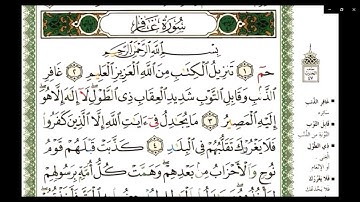 سُورَةُ غَافِرٍ
بِسْمِ اللَّهِ الرَّحْمَٰنِ الرَّحِيمِ
حمٓ ١ تَنزِيلُ الْكِتَٰبِ مِنَ اللَّهِ الْعَزِيزِ الْعَلِيمِ ٢ غَافِرِ
الذَّنۢبِ وَقَابِلِ التَّوْبِ شَدِيدِ الْعِقَابِ ذِى الطَّوْلِ لَآ إِلَٰهَ إِلَّا هُوَ
إِلَيْهِ الْمَصِيرُ ٣ مَا يُجَٰدِلُ فِىٓ ءَايَٰتِ اللَّهِ إِلَّا الَّذِينَ كَفَرُوا۟
فَلَا يَغْرُرْكَ تَقَلُّبُهُمْ فِى الْبِلَٰدِ ٤ كَذَّبَتْ قَبْلَهُمْ قَوْمُ
نُوحٍ وَالْأَحْزَابُ مِنۢ بَعْدِهِمْ وَهَمَّتْ كُلُّ أُمَّةٍۭ بِرَسُولِهِمْ
غَافِرِ الذَّنۢبِ
قَابِلِ التَّوْبِ
ذِى الطَّوْلِ
فَلَا يَغْرُرْكَ